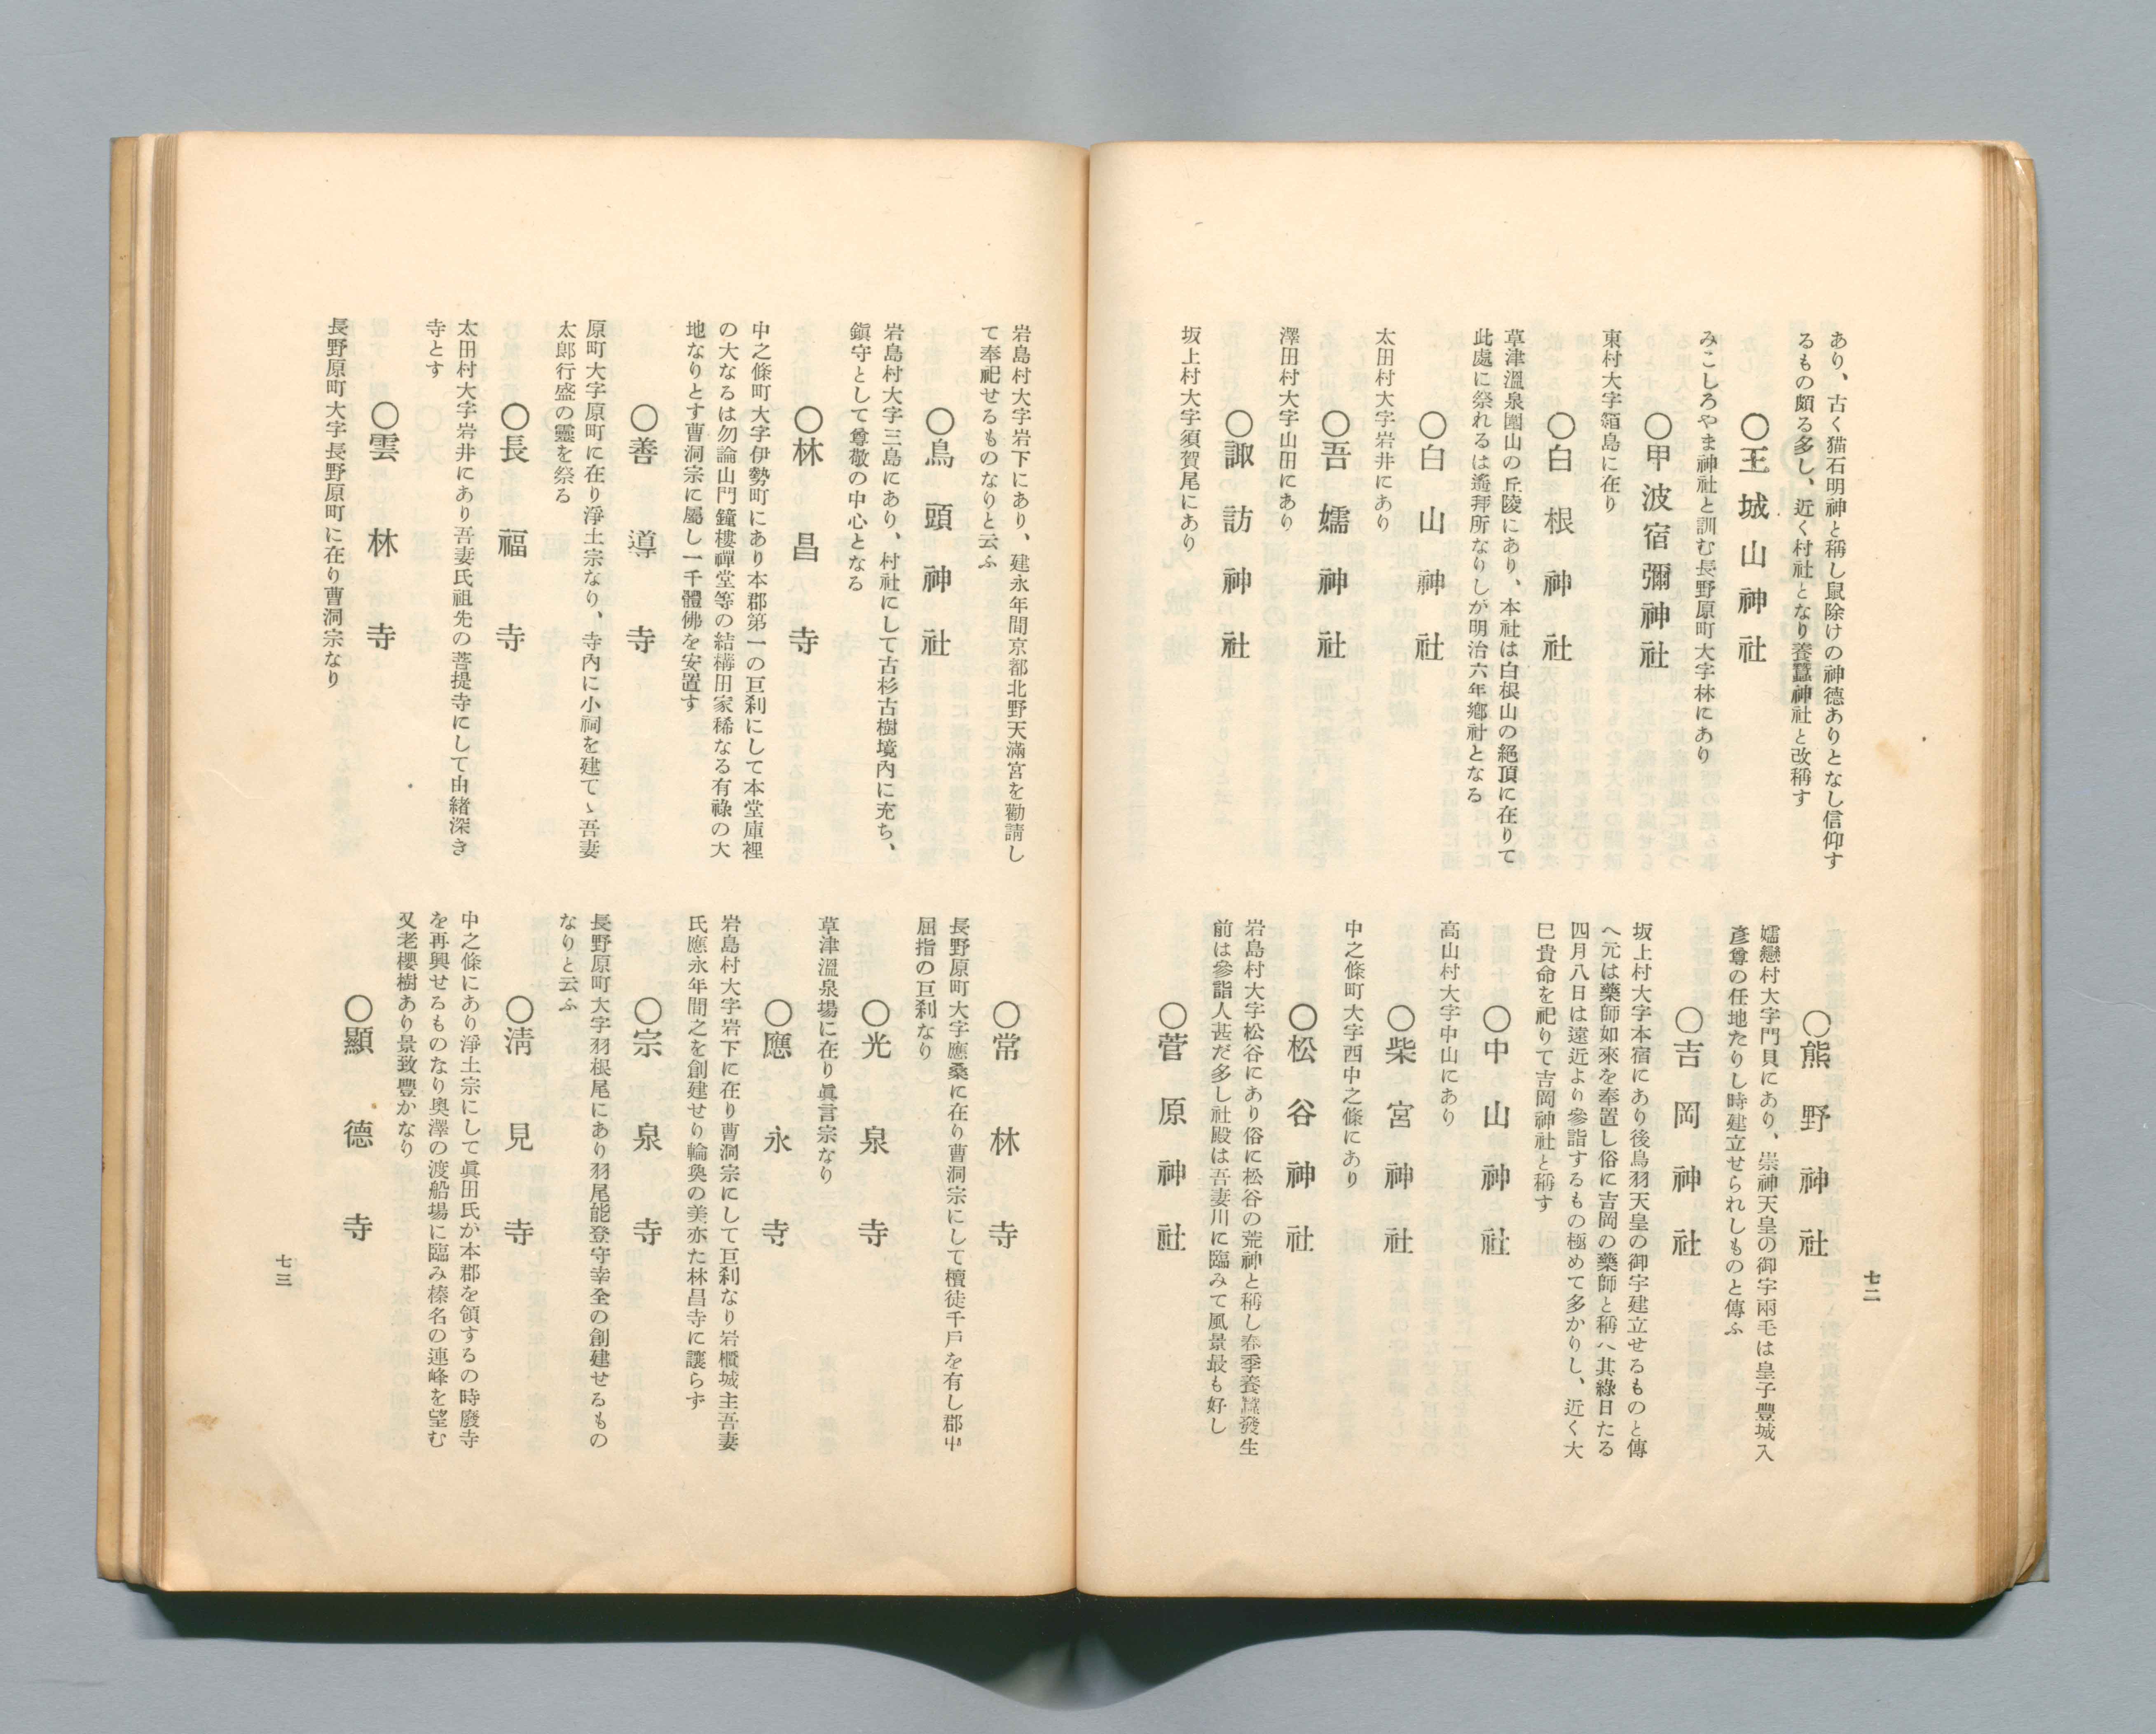 あり、古く猫石明神と稱し鼠除けの神德ありとなし信仰す
るもの頗る多し、近く村社となり養蠶神社と改稱す
〇王城山神社
みこしろやま神社と訓む長野原町大字林にあり
〇甲波宿彌神社
東村大字箱島に在り
〇白根神社
草津溫泉園山の丘陵にあり、本社は白根山の絕頂に在りて
此處に祭れるは遙拜所なりしが明治六年鄕社となる
〇白山神社
太田村大字岩井にあり
〇吾嬬神社
澤田村大字山田にあり
〇諏訪神社
坂上村大字須賀尾にあり
〇熊野神社
嬬戀村大字門貝にあり、崇神天皇の御宇兩毛は皇子豐城入
彥尊の任地たりし時建立せられしものと傳ふ
〇吉岡神社
坂上村大字本宿にあり後鳥羽天皇の御宇建立せるものと傳
へ元は藥師如來を奉置し俗に吉岡の藥師と稱へ其緣日たる
四月八日は遠近より參詣するもの極めて多かりし、近く大
巳貴命を祀りて吉岡神社と稱す
〇中山神社
高山村大字中山にあり
〇柴宮神社
中之條町大字西中之條にあり
〇松谷神社
岩島村大字松谷にあり俗に松谷の荒神と稱し春季養蠶發生
前は參詣人甚だ多し社殿は吾妻川に臨みて風景最も好し
〇菅原神社
七二
岩島村大字岩下にあり、建永年間京都北野天滿宮を勸請し
て奉祀せるものなりと云ふ
〇鳥頭神社
岩島村大字三島にあり、村社にして古杉古樹境內に充ち、
鎭守として尊敬の中心となる
〇林昌寺
中之條町大字伊勢町にあり本郡第一の巨刹にして本堂庫裡
の大なるは勿論山門鐘樓禪堂等の結構田家稀なる有祿の大
地なりとす曹洞宗に屬し一千體佛を安置す
〇善導寺
原町大字原町に在り淨土宗なり、寺內に小祠を建てゝ吾妻
太郎行盛の靈を祭る
〇長福寺
太田村大字岩井にあり吾妻氏祖先の菩提寺にして由緖深き
寺とす
〇雲林寺
長野原町大字長野原町に在り曹洞宗なり
〇常林寺
長野原町大字應桑に在り曹洞宗にして檀徒千戶を有し郡中
屈指の巨刹なり
〇光泉寺
草津溫泉場に在り眞言宗なり
〇應永寺
岩島村大字岩下に在り曹洞宗にして巨刹なり岩櫃城主吾妻
氏應永年間之を創建せり輪奐の美亦た林昌寺に讓らず
〇宗泉寺
長野原町大字羽根尾にあり羽尾能登守幸全の創建せるもの
なりと云ふ
〇淸見寺
中之條にあり淨土宗にして眞田氏か本郡を領するの時廢寺
を再興せるものなり奧澤の渡船場に臨み榛名の連峰を望む
又老櫻樹あり景致豐かなり
〇顯德寺
七三